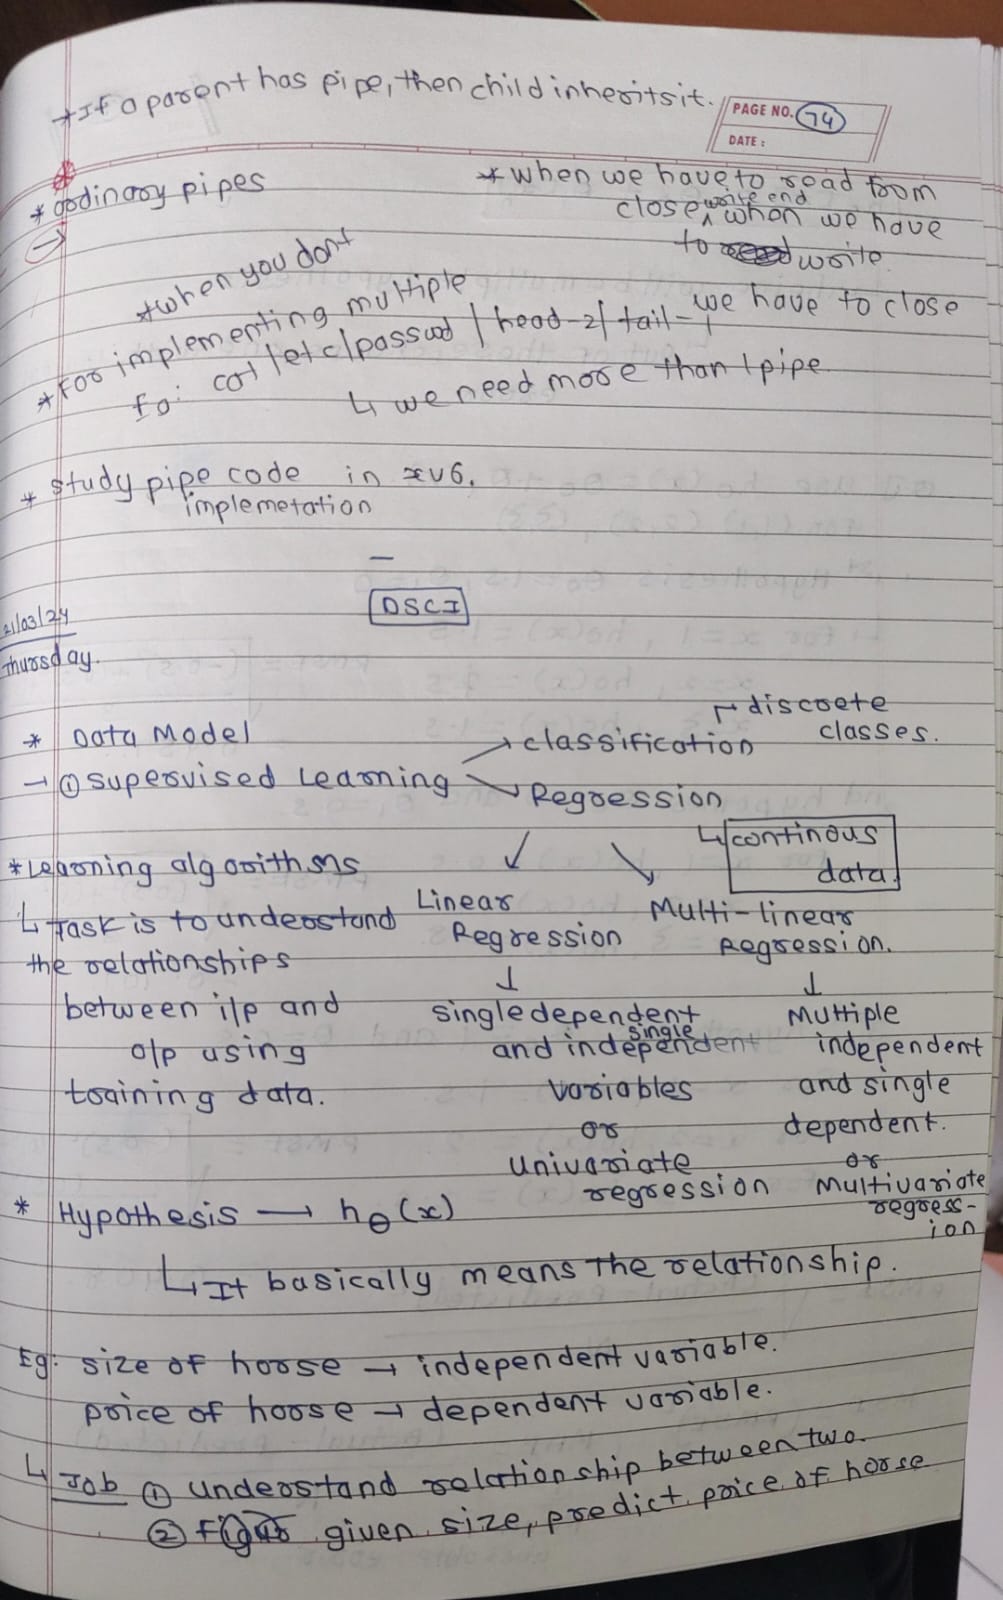 * If a parent has pipe, then child inherits it.
PAGE NO. 74
DATE :
* ordinary pipes
→
* when we have to read from
close write end when we have
to write.
* when you dont
we have to close
* For implementing multiple
for cat /etc/passwd | head -2 | tail -1
↳ we need more than 1 pipe.
* study pipe code in xv6.
implemetation
—
21/03/24
Thursday.
DSCI
* Data Model
→ ① supervised Learning
→ classification
→ discrete
classes.
→ Regression
↳ continous
data.
* Learning algorithms
↳ Task is to understand
the relationships
between i/p and
o/p using
training data.
Linear
Regression
↓
single dependent
and single independent
variables
or
univariate
regression
Multi-linear
Regression.
↓
Multiple
independent
and single
dependent.
or
Multivariate
regress-
ion
* Hypothesis → hθ(x)
↳ It basically means the relationship.
Eg: size of horse → independent variable.
price of horse → dependent variable.
↳ Job ① understand relationship between two.
② given size, predict price of horse